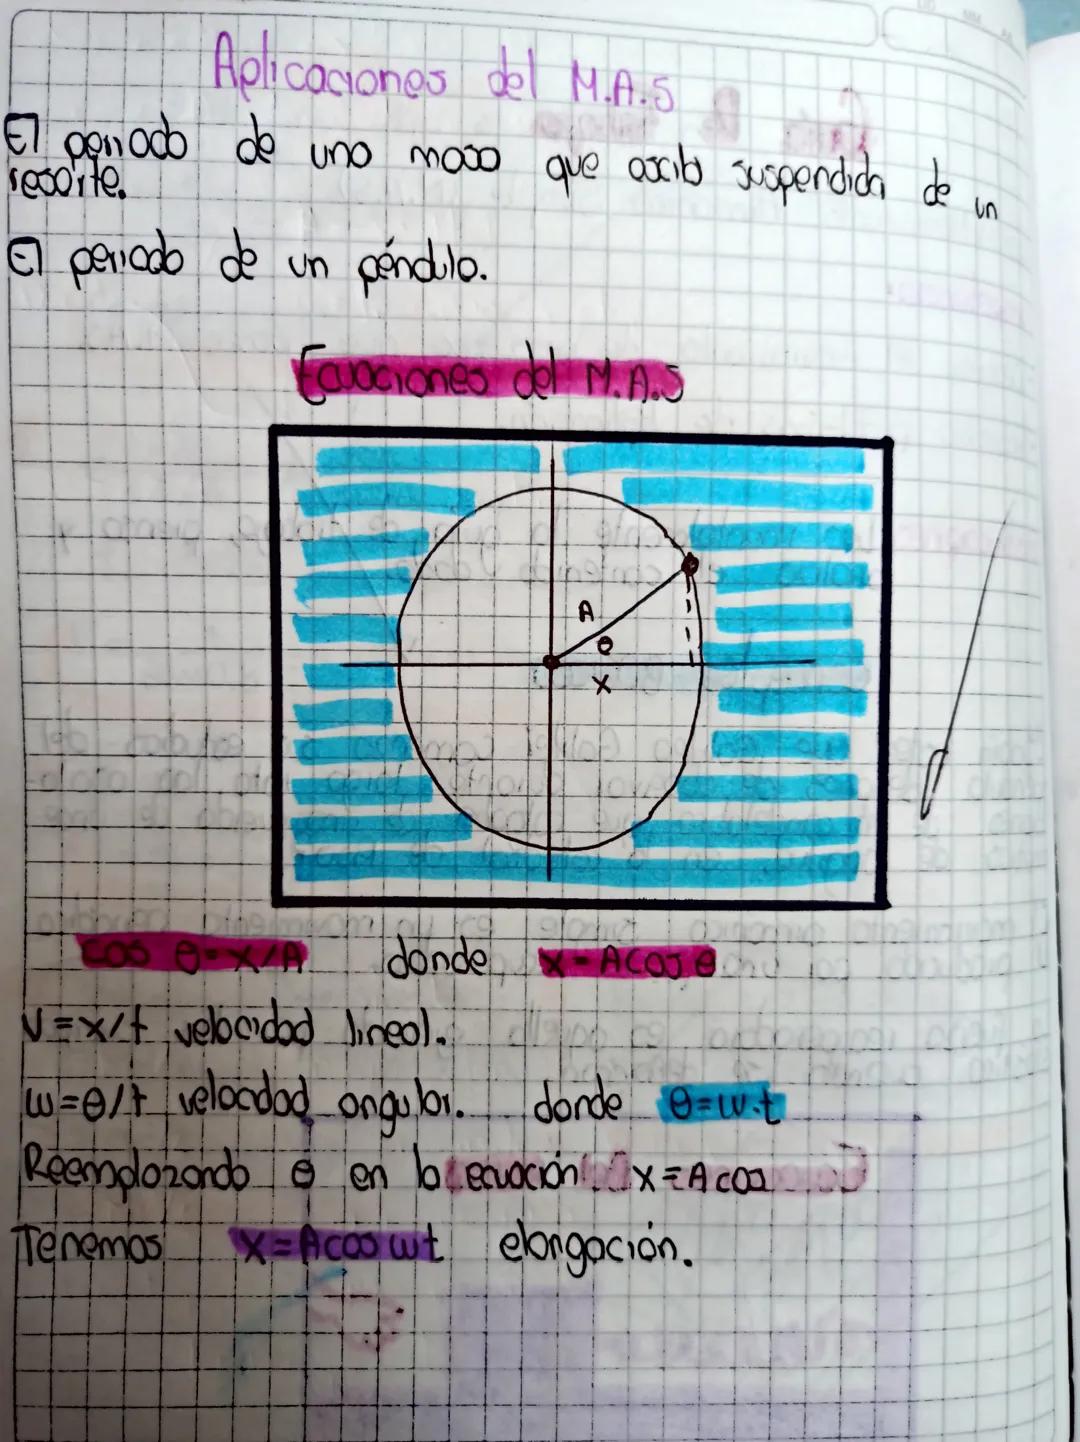 Aplicaciones del M.A.S
El periodo de una masa que oscila suspendida de un
resorte.
El periodo de un péndulo.
Ecuaciones del M.A.S
A
θ
X
cos θ = X/A donde X = A cos θ
V = x/t velocidad lineal.
w = θ/t velocidad angular. donde θ = w.t
Reemplazando θ en la ecuación X = A cos
Tenemos X = A cos wt elongación.